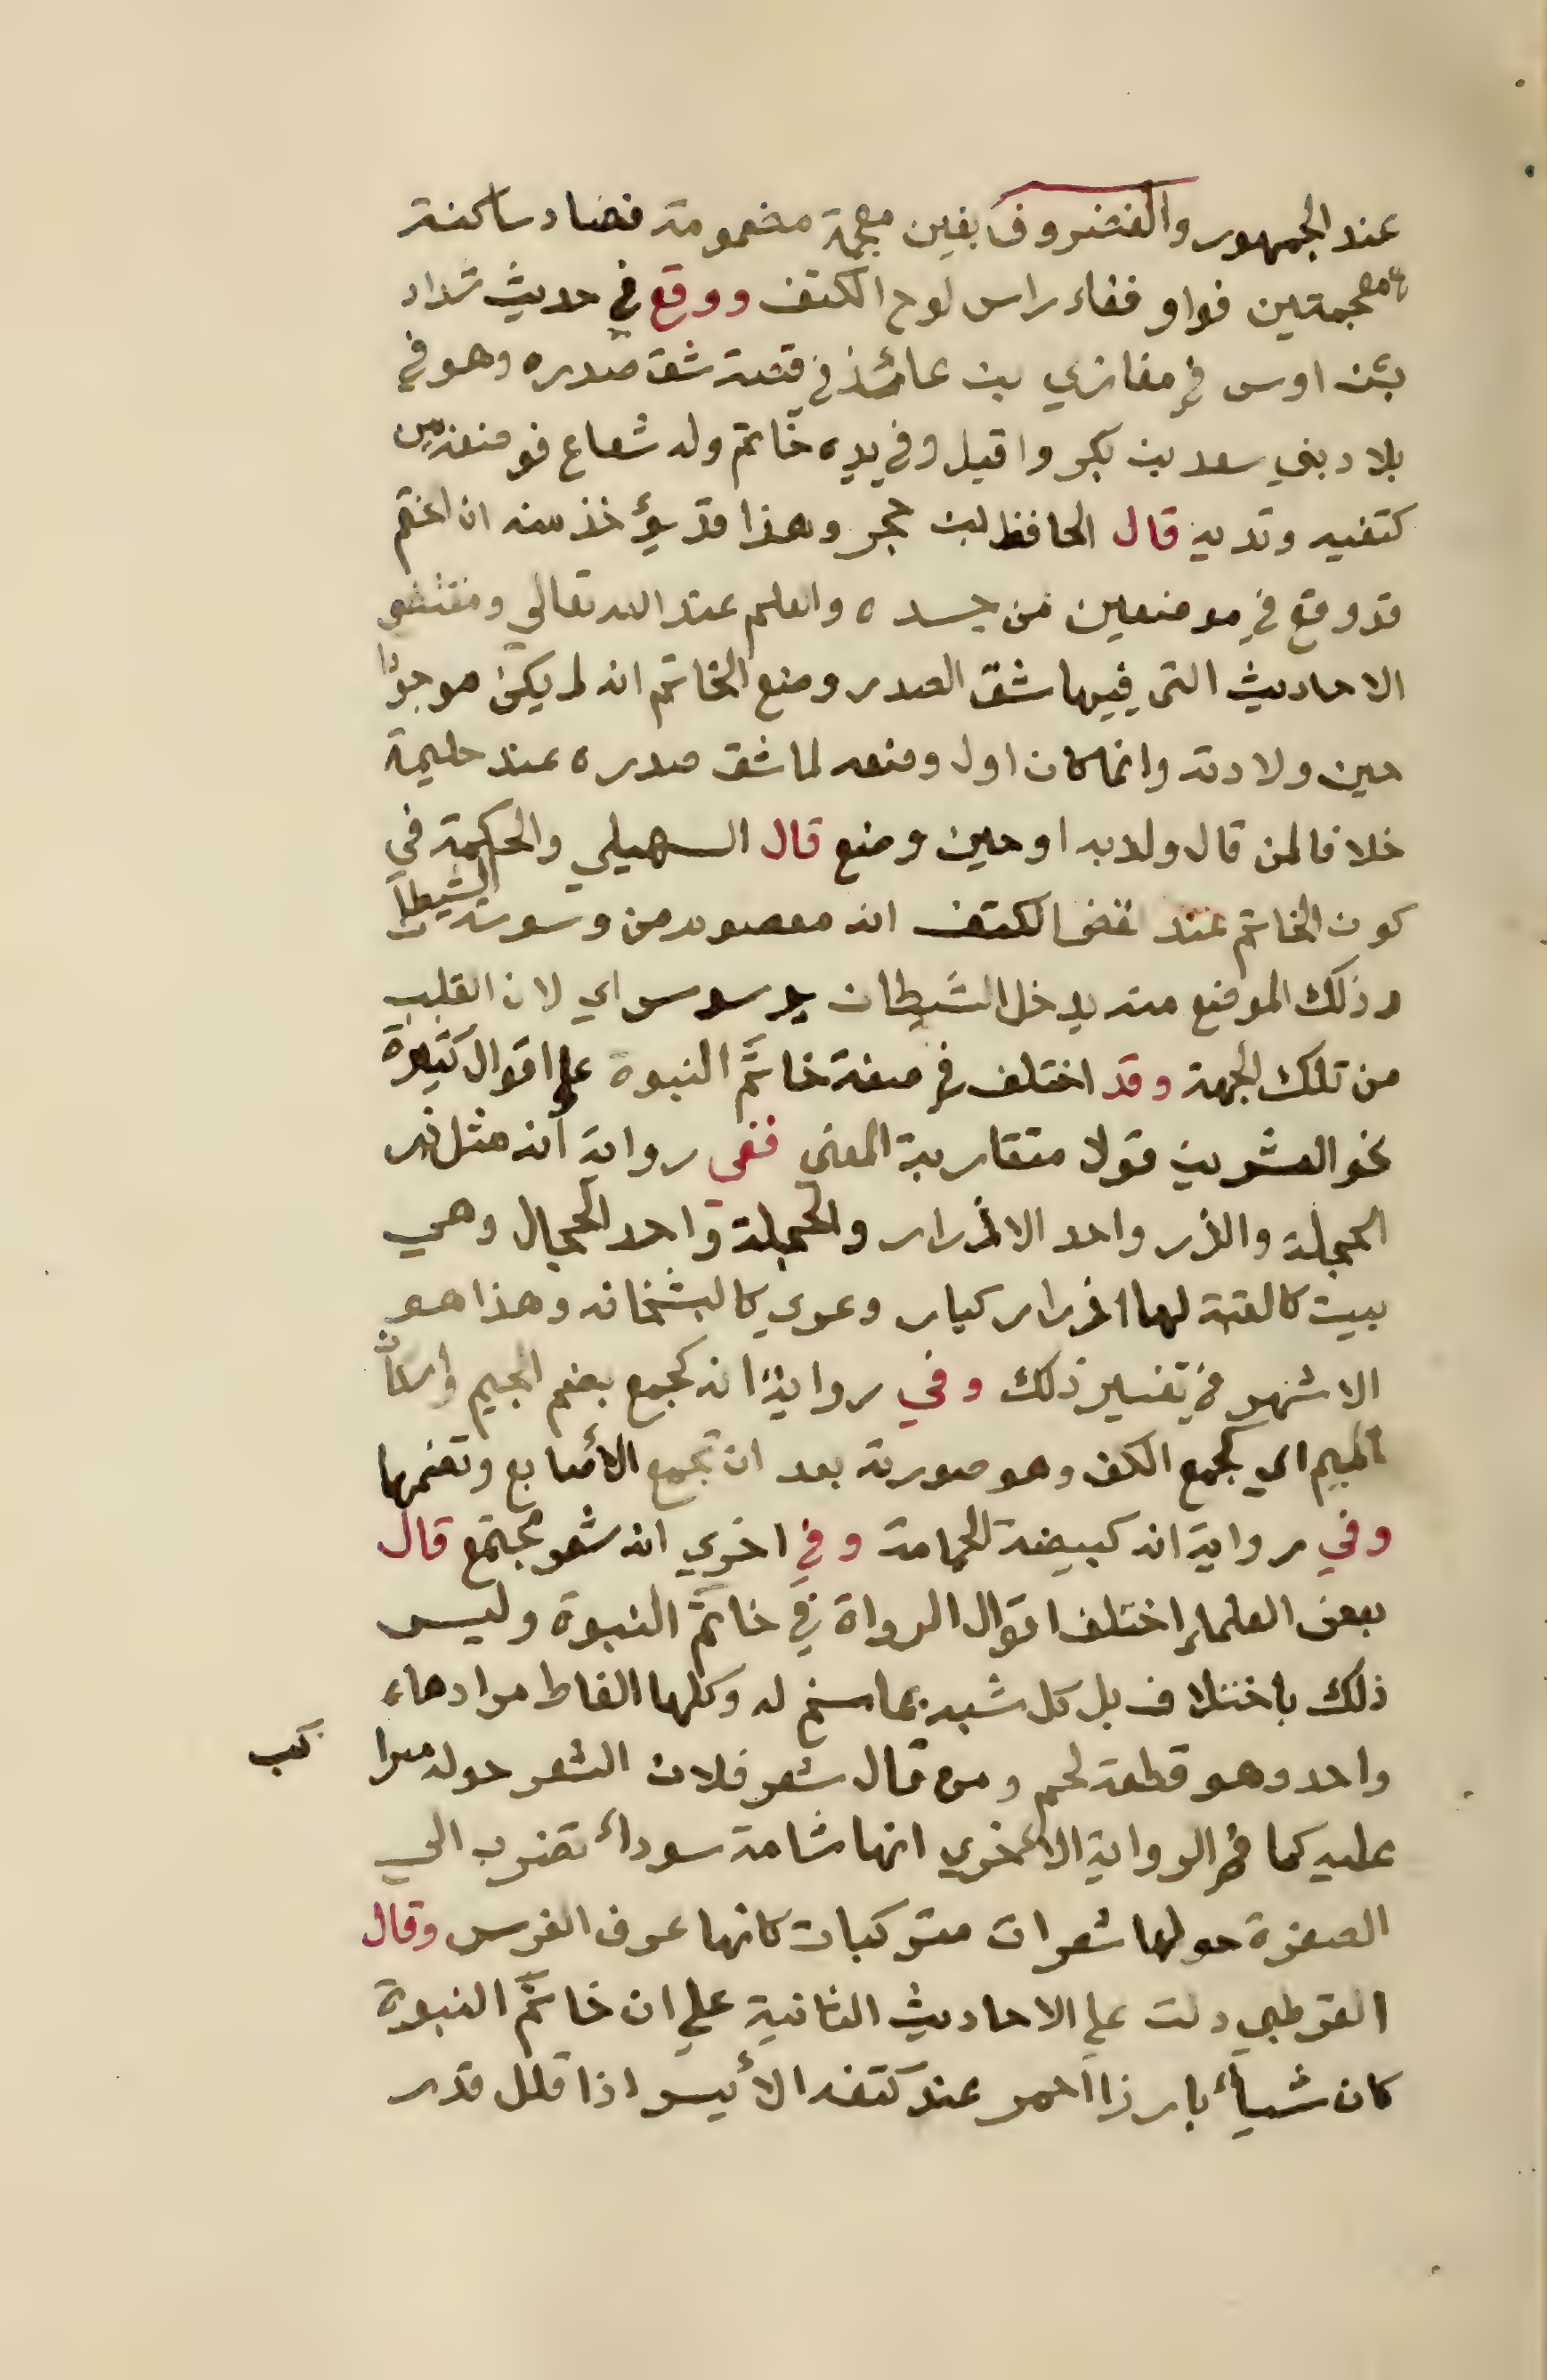 عند الجمهور والغضروف بغين معجمة مضمومة فضاد ساكنة
معجمتين فواو ففاء راس لوح الكتف ووقع في حديث شداد
بن اوس في مغازي بن عائذ في قصة شق صدره وهو في
بلاد بني سعد بن بكر واقبل وفي يده خاتم وله شعاع فوضعه بين
كتفيه وثدييه قال الحافظ بن حجر وهذا قد يؤخذ منه ان الختم
قد وقع في موضعين من جسده والعلم عند الله تعالي ومقتضي
الاحاديث التي فيها شق الصدر وضع الخاتم انه لم يكن موجودا
حين ولادته وانما كان اول وضعه لما شق صدره عند حليمة
خلافا لمن قال ولد به او حين وضع قال السهيلي والحكمة في
كون الخاتم عند نغض الكتف انه معصوم من وسوسة الشيطان
وذلك الموضع منه يدخل الشيطان يوسوس اي لان القلب
من تلك الجهة وقد اختلف في صفة خاتم النبوة علي اقوال كثيرة
نحو العشرين قولا متقاربة المعني ففي رواية انه مثل زر
الحجلة والزر واحد الازرار والحجلة واحد الحجال وهي
بيت كالقبة لها ازرار كبار وعري كالبشخانه وهذا هو
الاشهر في تفسير ذلك وفي رواية انه كجمع بضم الجيم واسكان
الميم اي كجمع الكف وهو صورته بعد ان تجمع الأصابع وتضمها
وفي رواية انه كبيضة الحمامة وفي اخري انه شعر مجتمع قال
بعض العلماء اختلف اقوال الرواة في خاتم النبوة وليس
ذلك باختلاف بل كل شبه بما سنح له وكلها الفاظ مرادها
واحد وهو قطعة لحم ومن قال شعر فلان الشعر حوله مترا كب
عليه كما في الرواية الاخري انها شامة سوداء تضرب الي
الصفرة حولها شعرات متركبات كانها عرف الفرس وقال
القرطبي دلت علي الاحاديث الثانية علي ان خاتم النبوة
كان شيأ بارزا احمر عند كتفه الأيسر اذا قلل قدر